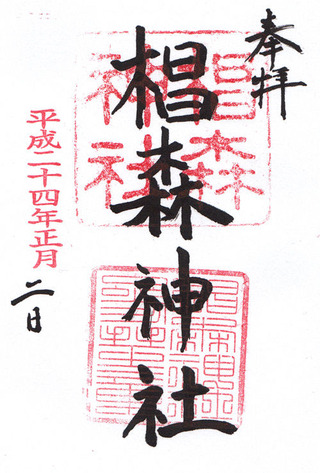 奉拝
椙森神社
椙森
神社
平成二十四年正月
二日